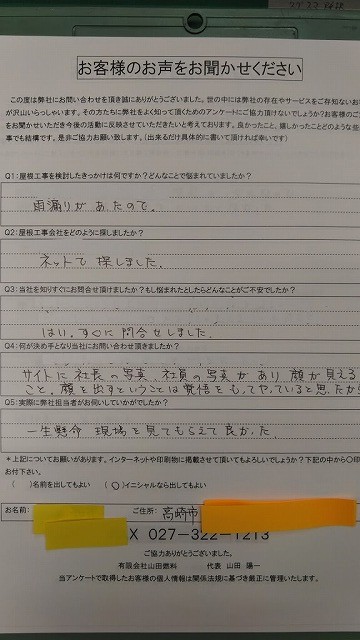 お客様のお声をお聞かせください
この度は弊社にお問い合わせを頂き誠にありがとうございました。世の中には弊社の存在やサービスをご存知ないお
が沢山いらっしゃいます。その方たちに弊社をよく知って頂くためのアンケートにご協力頂けないでしょうか?お客様のご
をお聞かせいただき今後の活動に反映させていただきたいと考えております。良かったこと、嬉しかったことどのような些
事でも結構です。是非ご協力お願い致します。(出来るだけ具体的に書いて頂ければ幸いです)
Q1:屋根工事を検討したきっかけは何ですか?どんなことで悩まれていましたか?
雨漏りがあたので。
Q2:屋根工事会社をどのように探しましたか?
ネットで探しました。
Q3:当社を知りすぐにお問合せ頂けましたか?もし悩まれたとしたらどんなことがご不安でしたか?
はい、すぐに問合せしました。
Q4:何が決め手となり当社にお問い合わせ頂きましたか?
サイトに社長の写真、社員の写真があり顔が見える
こと。顔を出すということは覚悟をもってやっていると思たから
Q5:実際に弊社担当者がお伺いしていかがでしたか?
一生懸命現場を見てもらえて良かた。
*上記についてお願いがあります。インターネットや印刷物に掲載させて頂いてもよろしいでしょうか?下記の中から○印
お付下さい。
( )名前を出してもよい (○)イニシャルなら出してもよい
お名前: ご住所:高崎市
X 027-322-1213
ご協力ありがとうございました。
有限会社山田燃料 代表 山田 陽一
当アンケートで取得したお客様の個人情報は関係法規に基づき厳正に管理いたします。